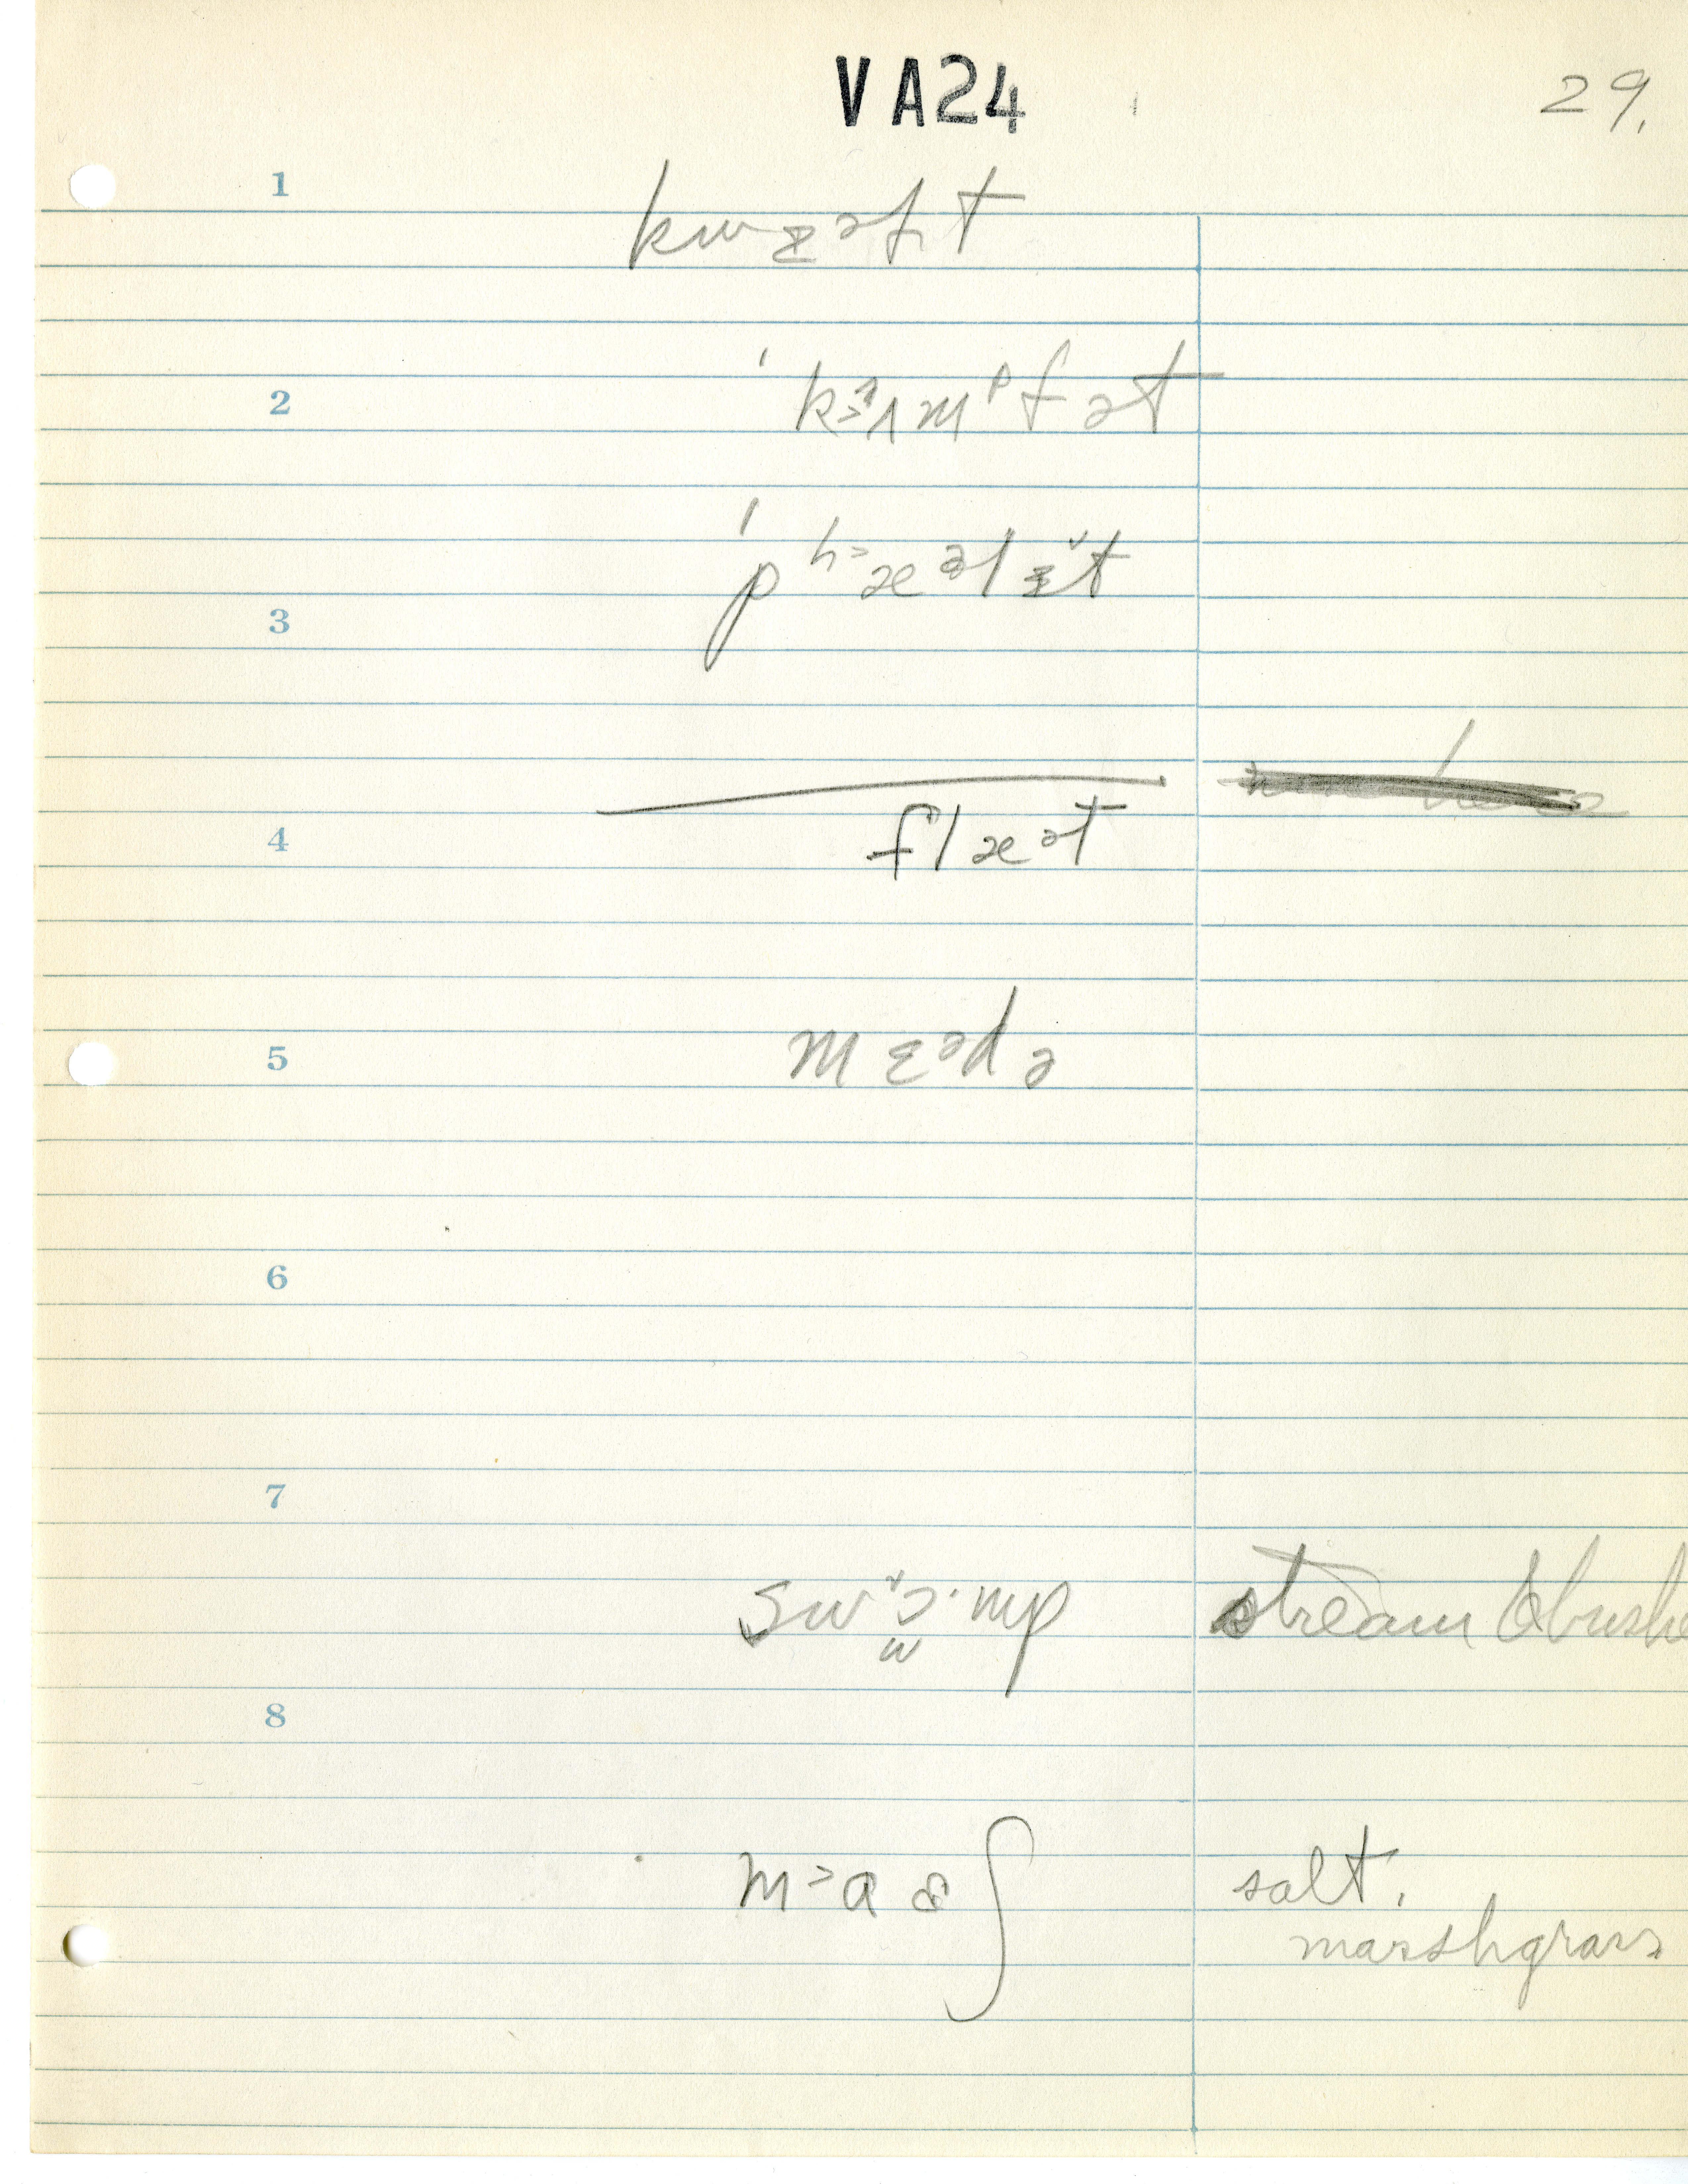 VA24
29.
1
kwɪəft
2
ˈkʌmᵖfət
ˈpʰæəlɪt
3
flæət
4
mɛədə
5
6
7
swɔ·mp stream & bushe
8
m˃aɞʃ salt.
marshgrass